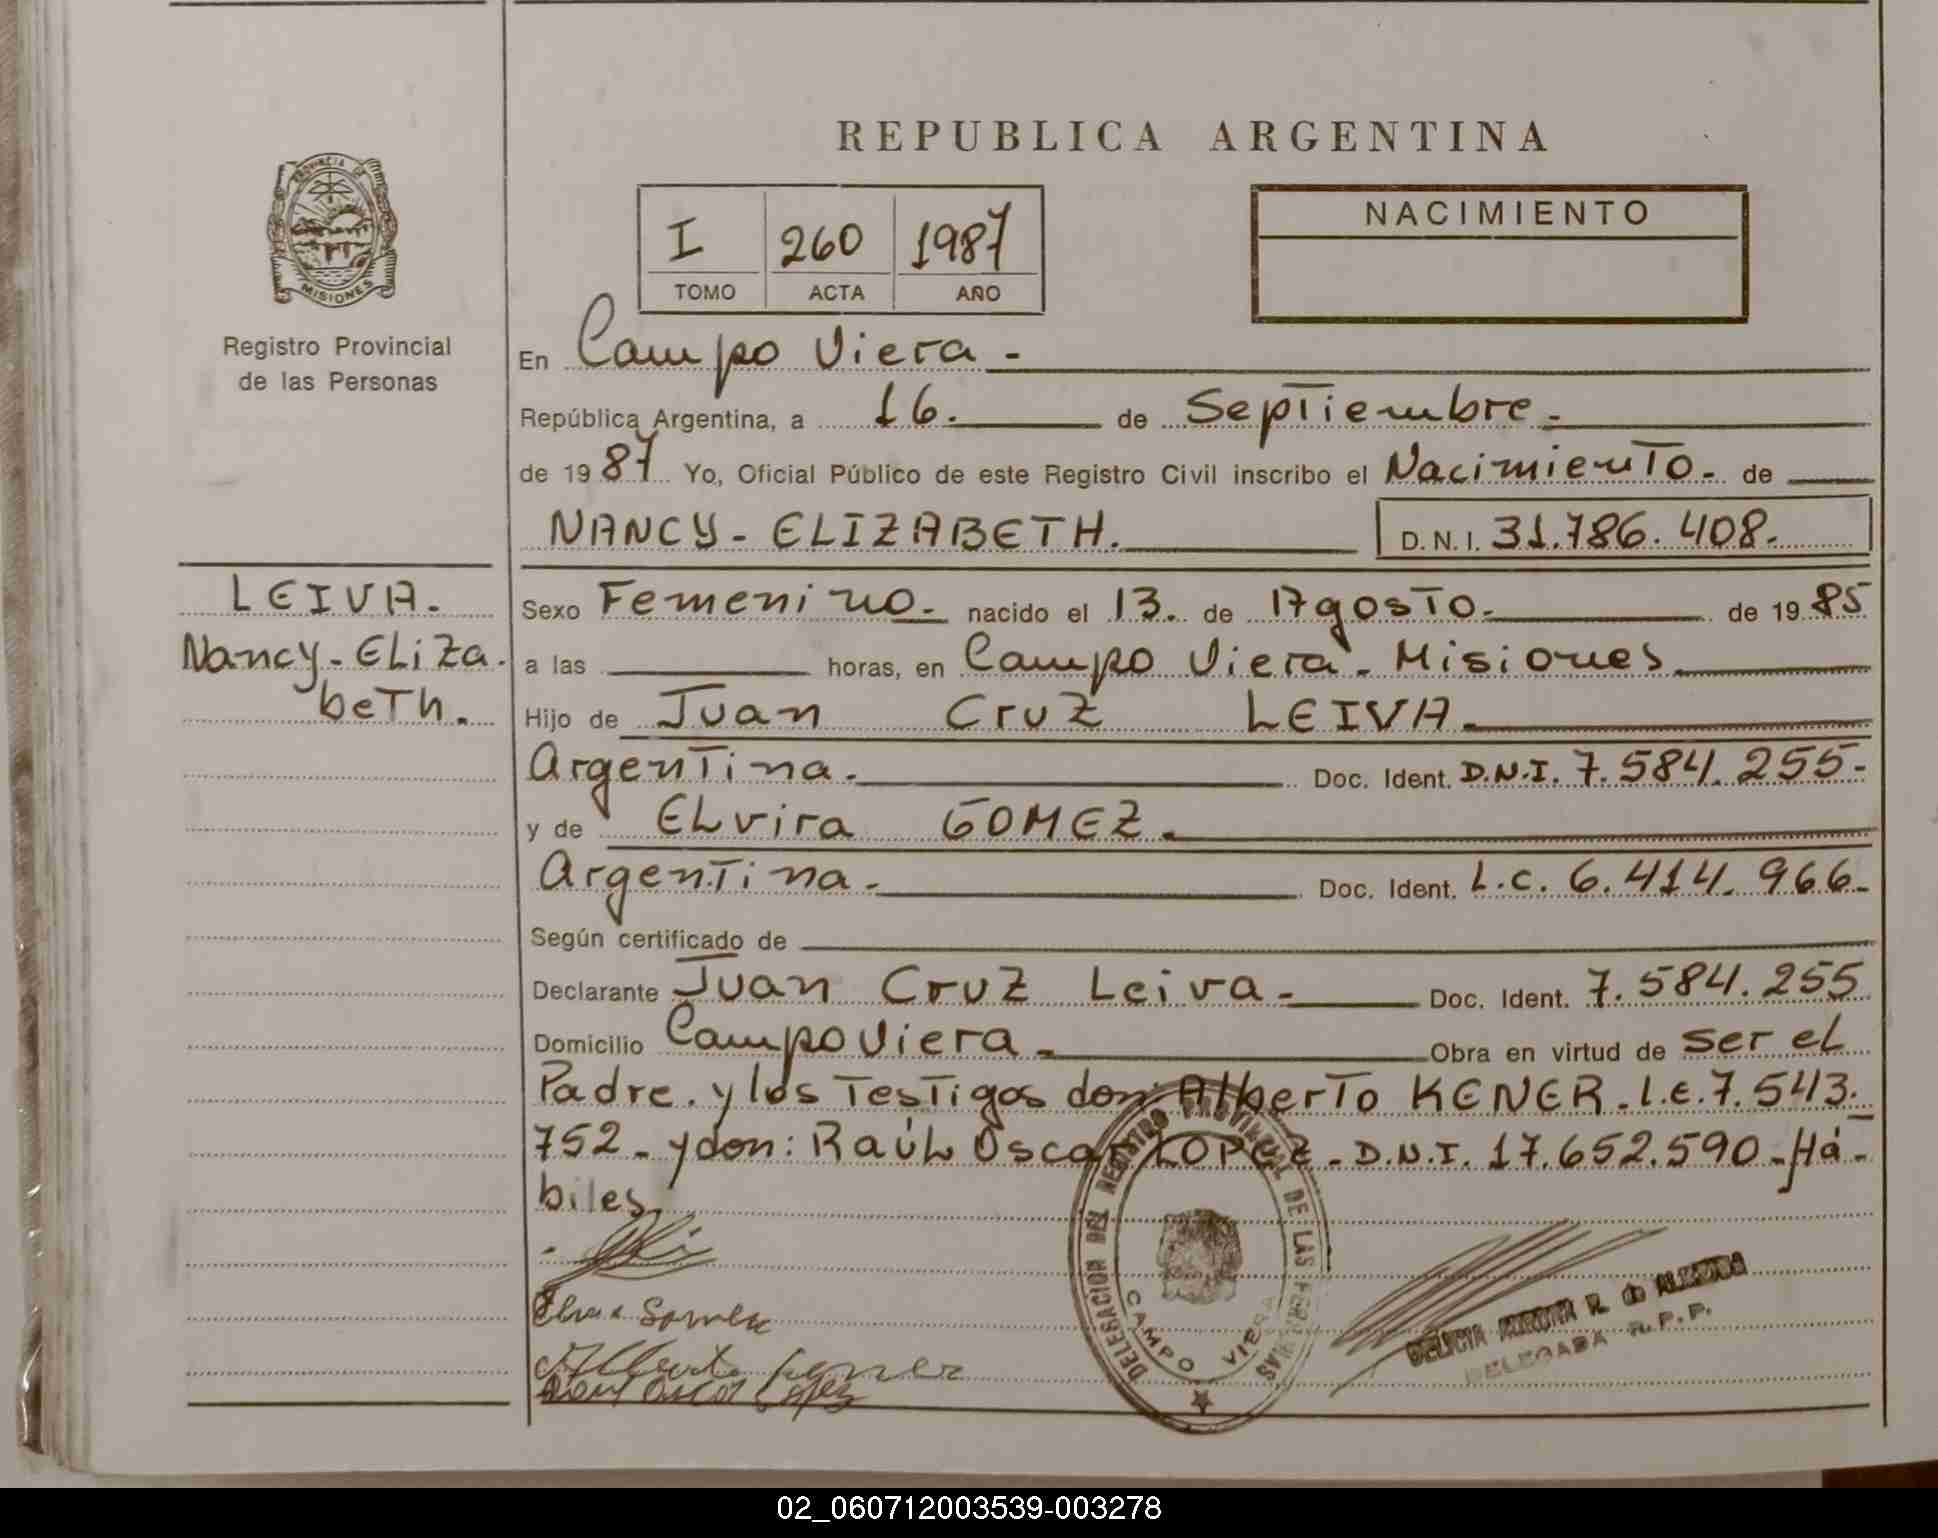 REPUBLICA ARGENTINA
PROVINCIA DE
MISIONES
Registro Provincial
de las Personas
I 260 1987
TOMO ACTA AÑO
NACIMIENTO
En Campo Viera -
República Argentina, a 16. de Septiembre.
de 1987 Yo, Oficial Público de este Registro Civil inscribo el Nacimiento. de
NANCY - ELIZABETH. D.N.I. 31.786.408.
LEIVA.
Nancy - Eliza
beth.
Sexo Femenino. nacido el 13. de Agosto. de 1985
a las horas, en Campo Viera - Misiones
Hijo de Juan Cruz LEIVA.
Argentina. Doc. Ident. D.N.I. 7.584.255-
y de Elvira GOMEZ.
Argentina. Doc. Ident. L.C. 6.414.966-
Según certificado de
Declarante Juan Cruz Leiva - Doc. Ident. 7.584.255
Domicilio Campo Viera - Obra en virtud de ser el
Padre. y los Testigos don: Alberto KENER - L.E. 7.543.
752 - y don: Raúl Oscar LOPEZ - D.N.I. 17.652.590 - Há-
biles.
DELEGACION DEL REGISTRO PROVINCIAL DE LAS PERSONAS
CAMPO VIERA
Elvira Gomez
Alberto Kener
Raul Oscar Lopez
R. de
DELEGADA R.P.P.
02_060712003539-003278